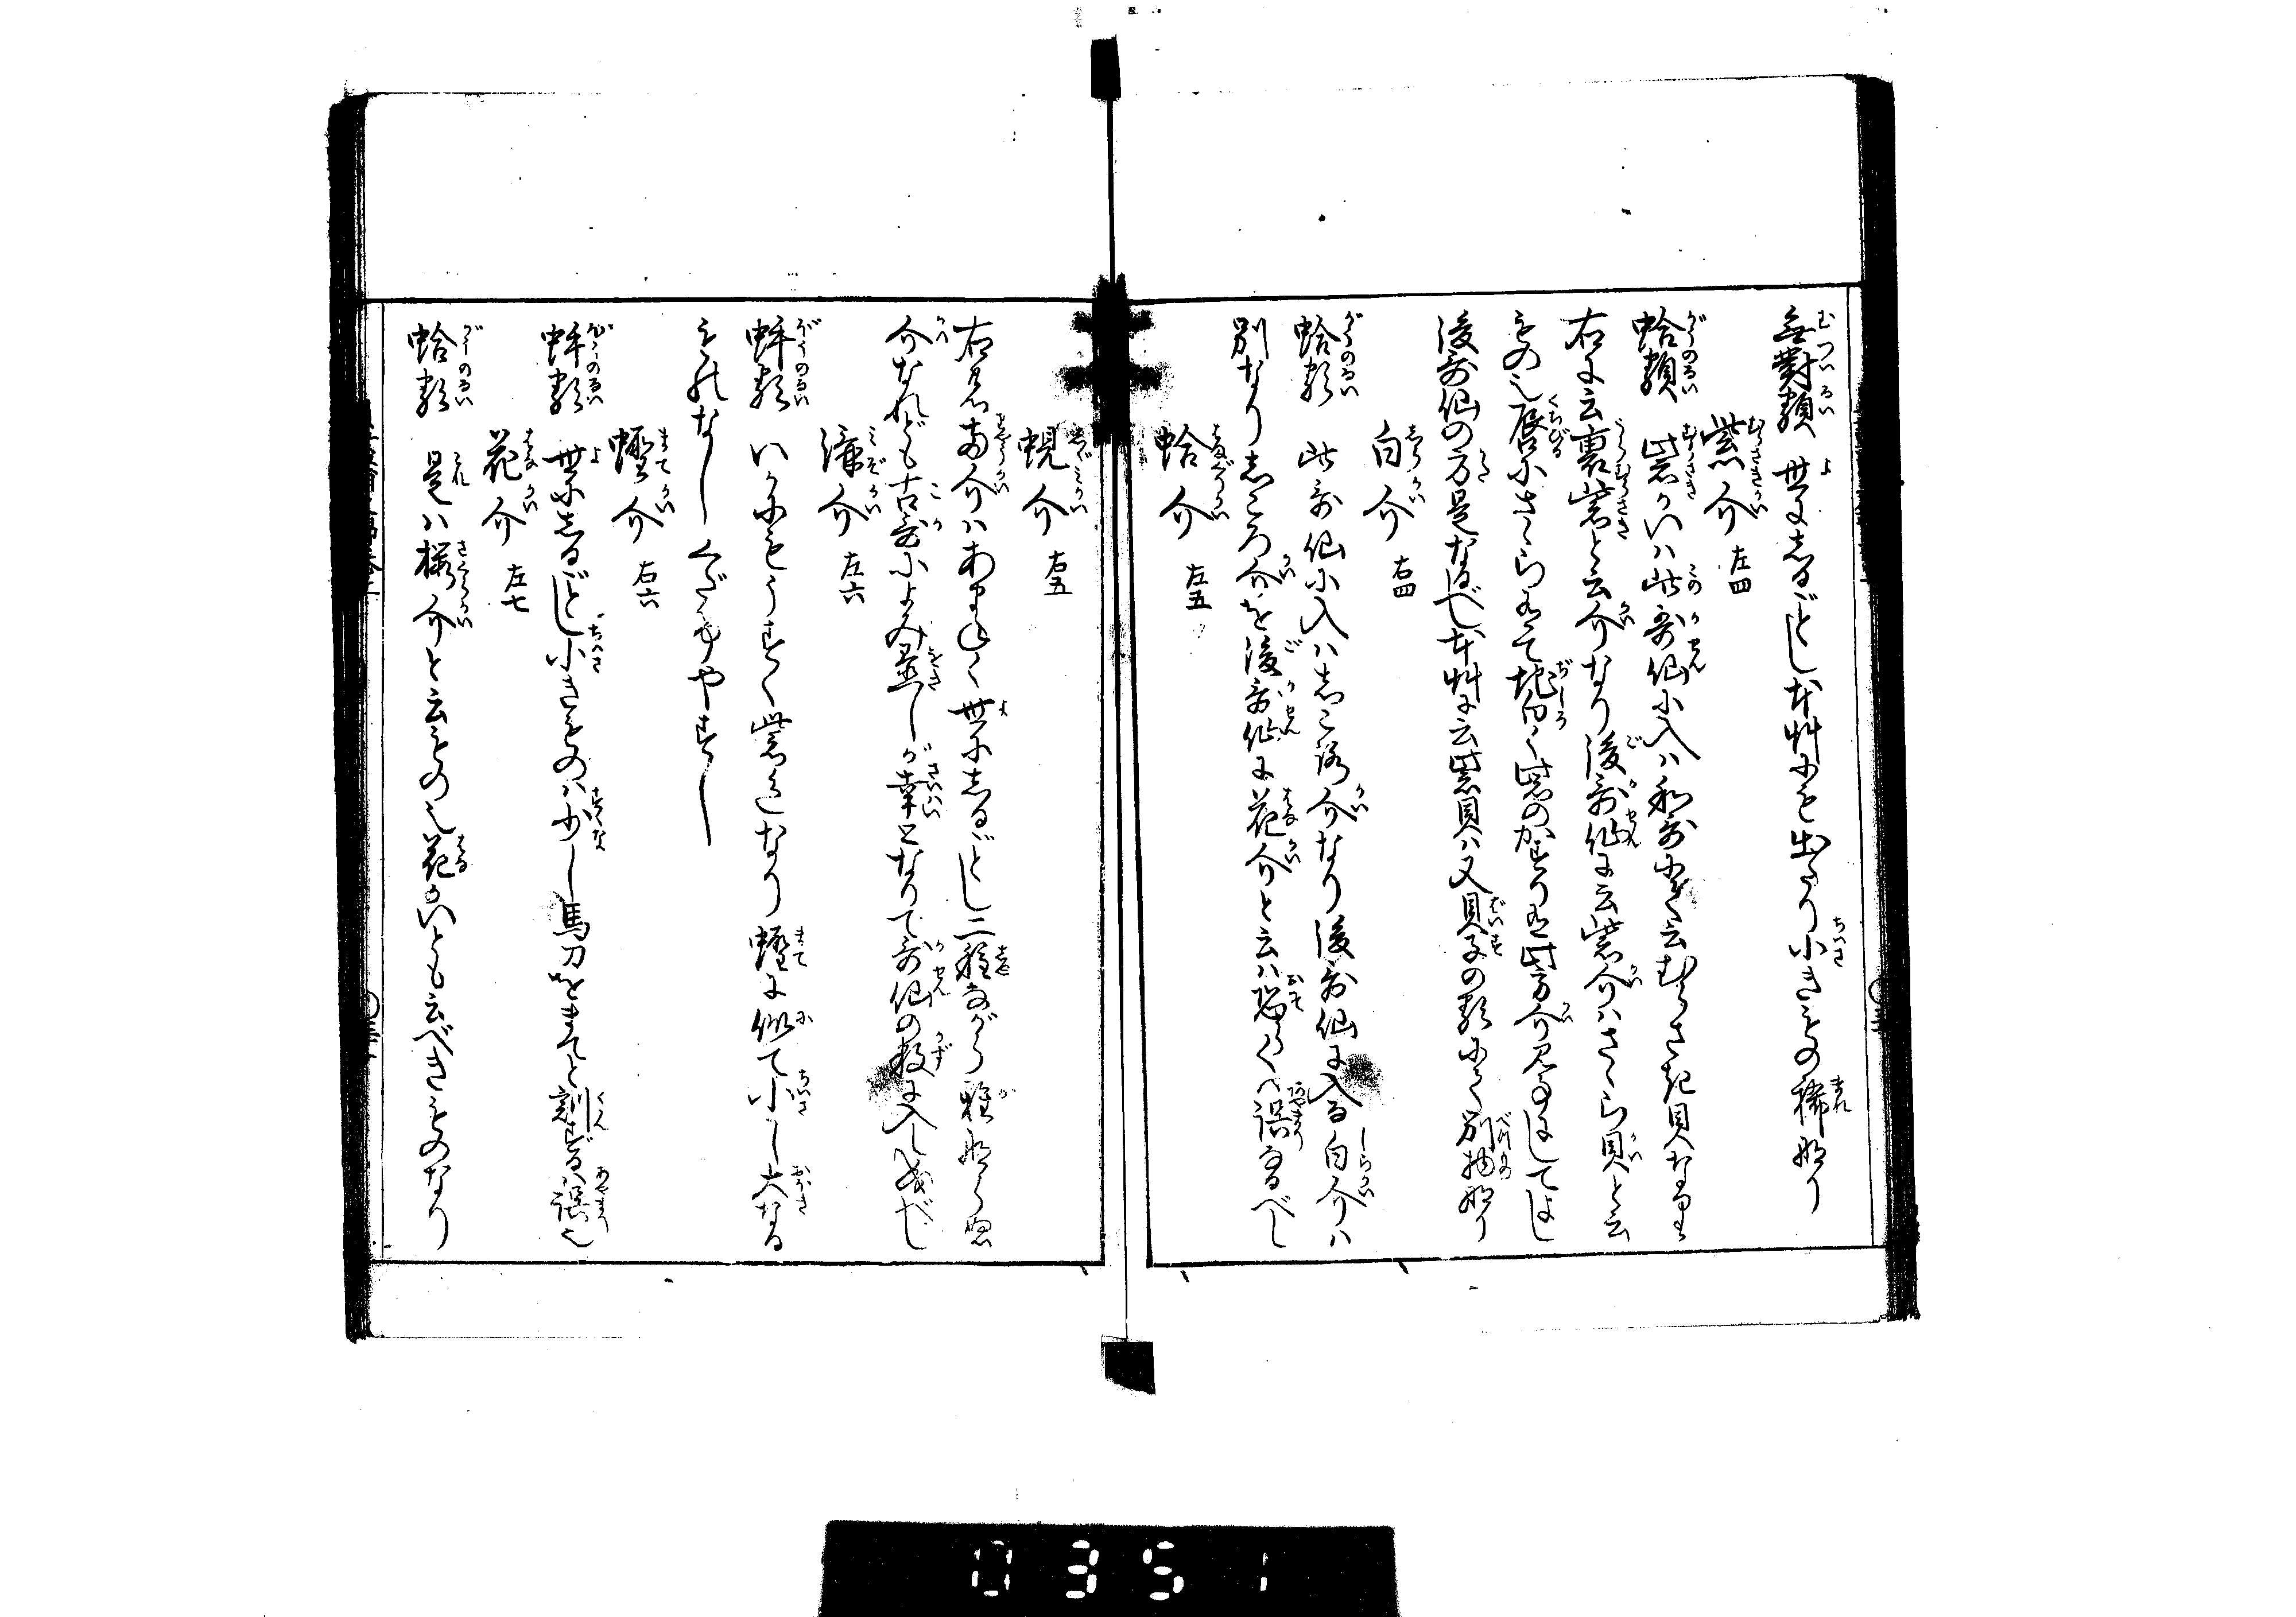 無對類 世にしるごとし本艸にも出たり小きもの稀なり
紫介 左四
蛤類 紫かいハ此哥仙に入ハ和哥にも云むらさき貝なり
右に云裏紫と云介なり後哥仙に云紫介ハさくら貝と云
もの也唇にさくら有て地白く紫のかすり有
後哥仙の方是なるべし本艸に云紫貝ハ又貝子の類にて別物なり
白介 右四
蛤類 此哥仙に入ハしころ介なり後哥仙に入る白介ハ
別なりしころ介を後哥仙に花介と云ハ恐らくハ誤なるべし
蛤介 左五
蜆介 右五
右の両介ハあまねく世にしるごとし二種ながら雅ならぬ
介なれども古哥によみ置しが幸となりて哥仙の数に入しなるべし
溝介 左六
蚌類 いかにもうすく紫色なり蟶に似て小し大なる
もれなしくだけやすし
蟶介 右六
蚌類 世にしるごとし小きものハ少し馬刀をまてと訓ずるハ誤也
花介 左七
蛤類 是ハ桜介と云もの也花かいとも云べきものなり
0351